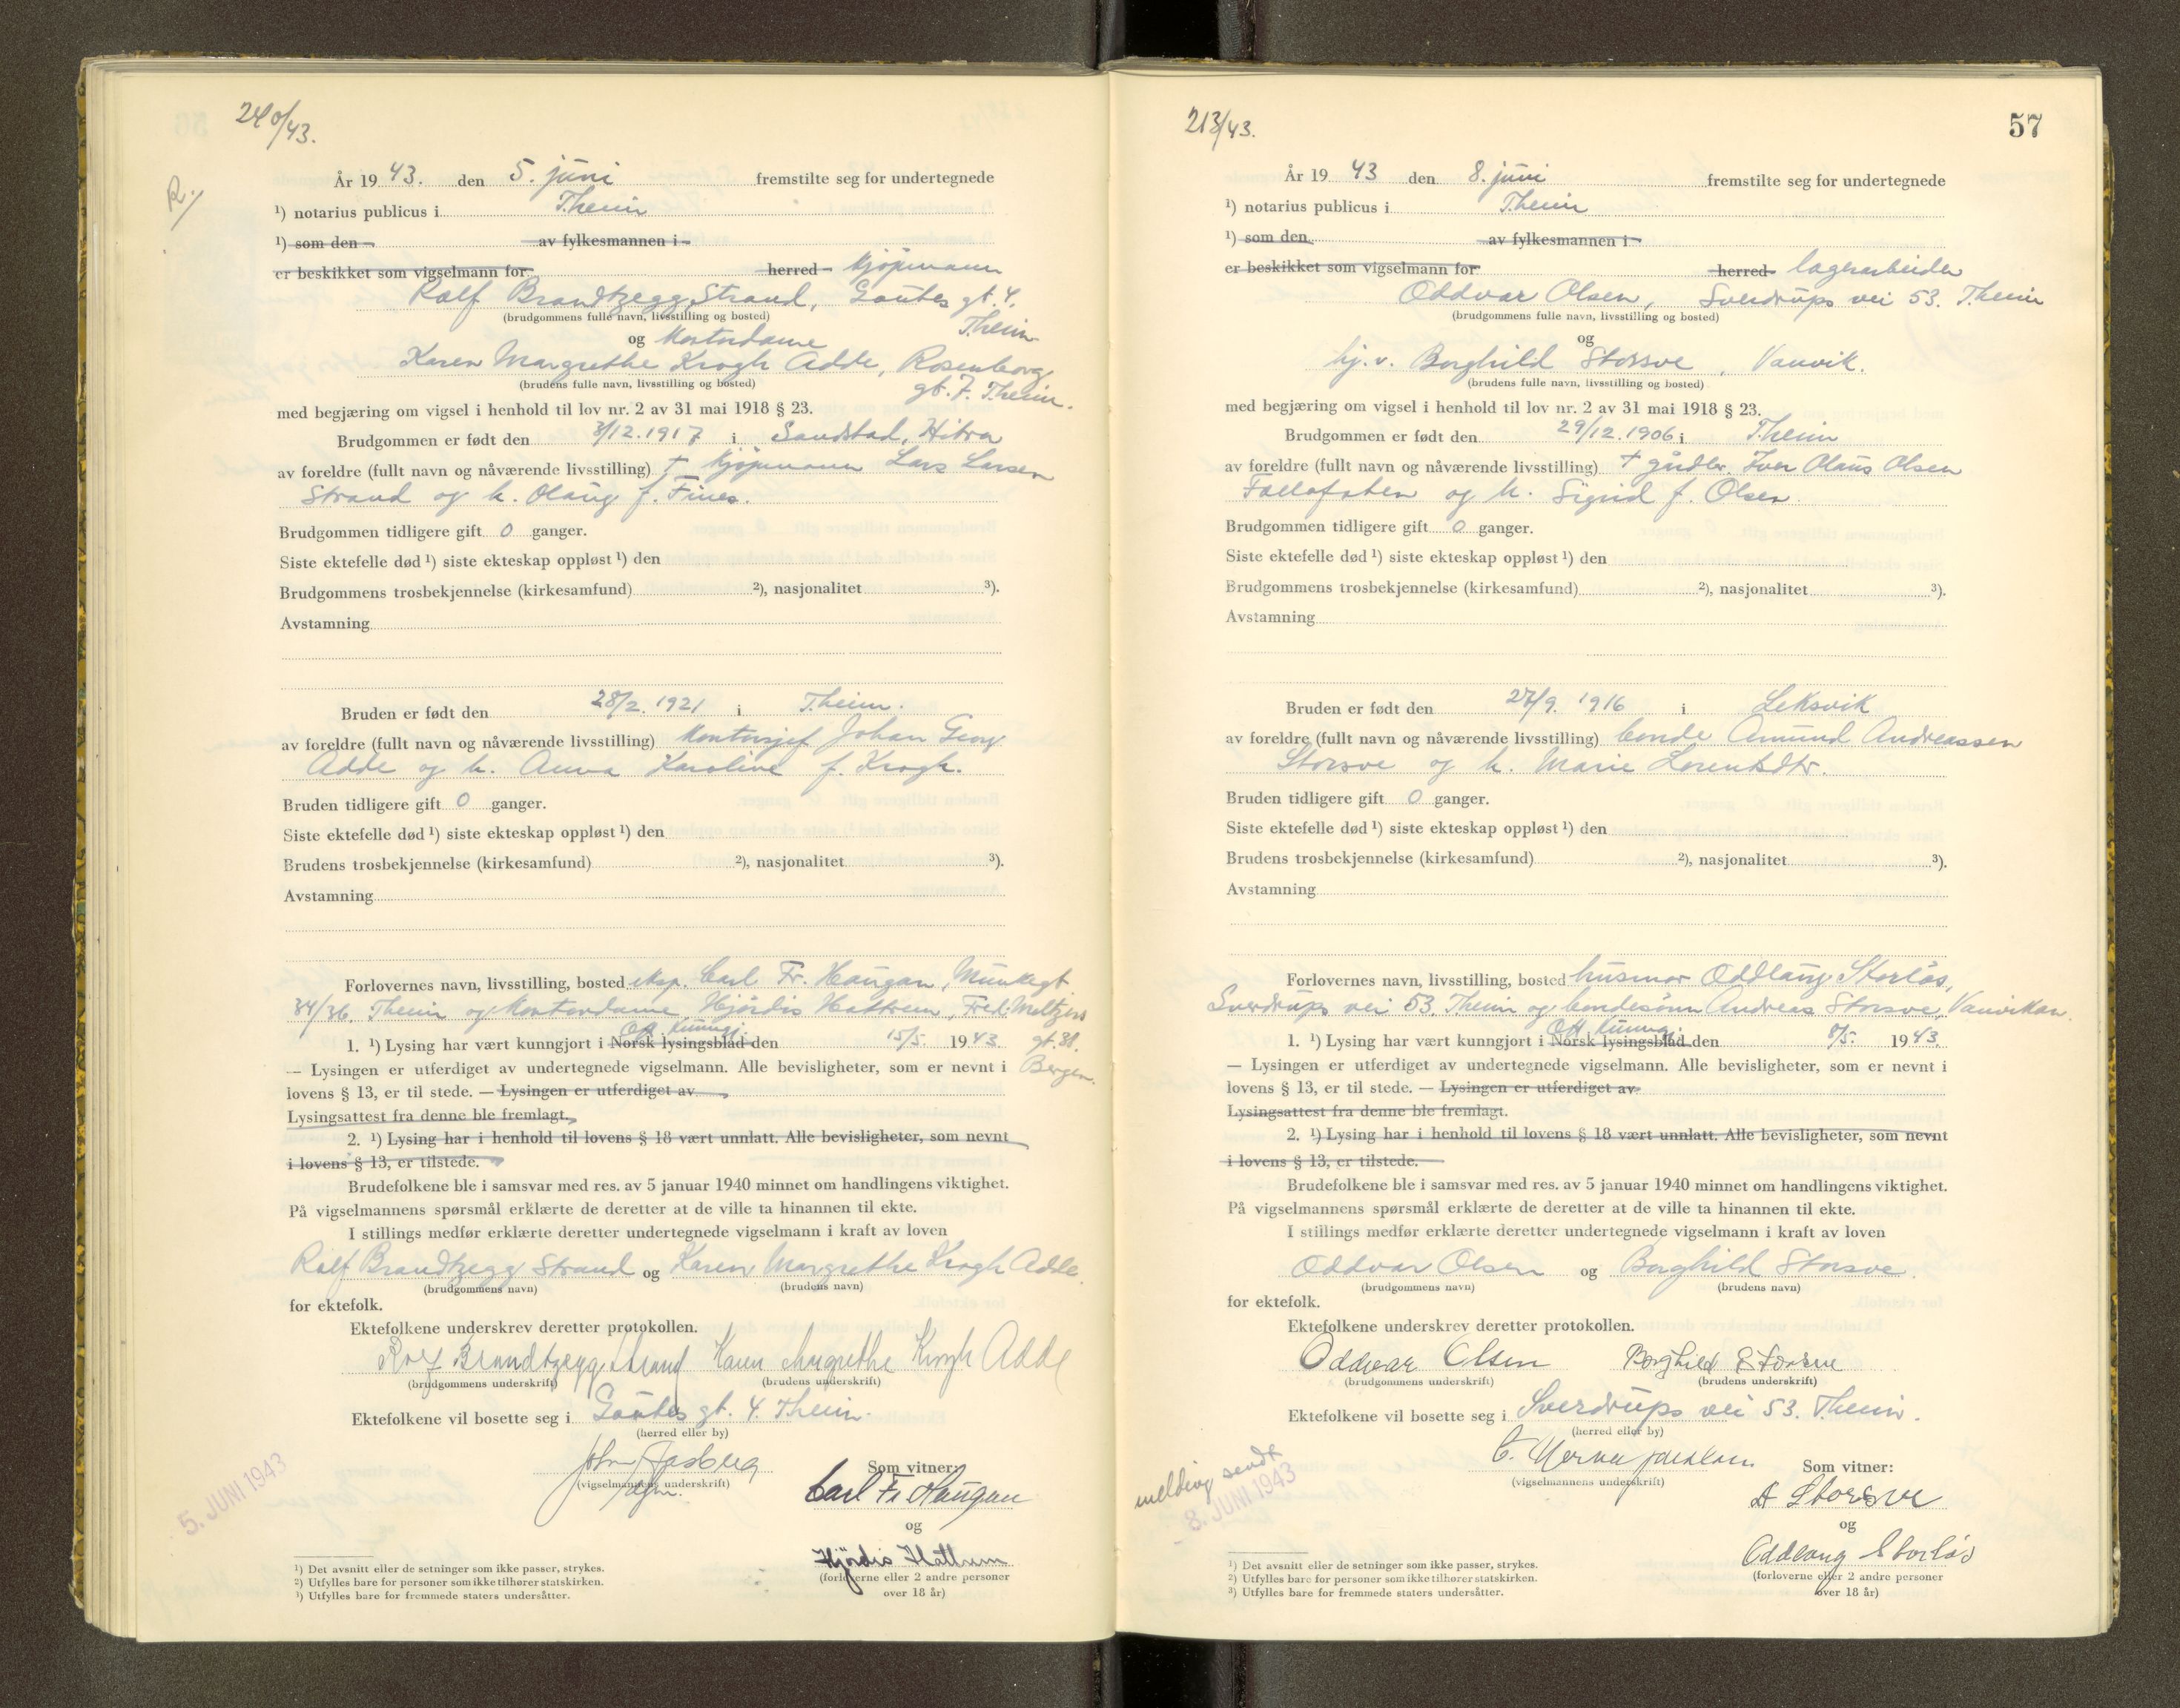 240/43.
R./
År 1943. den 5. juni fremstilte seg for undertegnede
¹) notarius publicus i T.heim
¹) som den av fylkesmannen i
er beskikket som vigselmann for herred kjøpmann
Ralf Brandtzegg Strand, Gautes gt. 4.
(brudgommens fulle navn, livsstilling og bosted) T.heim
og kontordame
Karen Margrethe Krogh Adde, Rosenborg
(brudens fulle navn, livsstilling og bosted) gt. 7. T.heim.
med begjæring om vigsel i henhold til lov nr. 2 av 31 mai 1918 § 23.
Brudgommen er født den 3/12.1917 i Sandstad, Hitra
av foreldre (fullt navn og nåværende livsstilling) † kjøpmann Lars Larsen
Strand og h. Olaug f. Fines.
Brudgommen tidligere gift 0 ganger.
Siste ektefelle død ¹) siste ekteskap oppløst ¹) den
Brudgommens trosbekjennelse (kirkesamfund) ²), nasjonalitet ³).
Avstamning
Bruden er født den 28/2. 1921 i T.heim.
av foreldre (fullt navn og nåværende livsstilling) kontorsjef Johan Georg
Adde og h. Anna Karoline f. Krogh.
Bruden tidligere gift 0 ganger.
Siste ektefelle død ¹) siste ekteskap oppløst ¹) den
Brudens trosbekjennelse (kirkesamfund) ²), nasjonalitet ³).
Avstamning
Forlovernes navn, livsstilling, bosted eksp. Carl Fr. Haugan, Munkegt.
34/36. T.heim og kontordame Hjördis Hattrem, Fred. Meltzers
Off. kunngj.
1. ¹) Lysing har vært kunngjort i Norsk lysingsblad den 15/5. 1943. gt. 38.
— Lysingen er utferdiget av undertegnede vigselmann. Alle bevisligheter, som er nevnt i Bergen.
lovens § 13, er til stede. — Lysingen er utferdiget av
Lysingsattest fra denne ble fremlagt.
2. ¹) Lysing har i henhold til lovens § 18 vært unnlatt. Alle bevisligheter, som nevnt
i lovens § 13, er tilstede.
Brudefolkene ble i samsvar med res. av 5 januar 1940 minnet om handlingens viktighet.
På vigselmannens spørsmål erklærte de deretter at de ville ta hinannen til ekte.
I stillings medfør erklærte deretter undertegnede vigselmann i kraft av loven
Ralf Brandtzegg Strand og Karen Margrethe Krogh Adde.
(brudgommens navn) (brudens navn)
for ektefolk.
Ektefolkene underskrev deretter protokollen.
Brandtzegg Strand Karen Margrethe Krogh Adde
(brudgommens underskrift) (brudens underskrift)
Ektefolkene vil bosette seg i Gautes gt. 4. T.heim.
(herred eller by)
(vigselmannens underskrift) Som vitner:
Carl Fr. Haugan
og
Hjördis Hattrem
(forloverne eller 2 andre personer
over 18 år)
5. JUNI 1943
¹) Det avsnitt eller de setninger som ikke passer, strykes.
²) Utfylles bare for personer som ikke tilhører statskirken.
³) Utfylles bare for fremmede staters undersåtter.
213/43.
57
År 1943 den 8. juni fremstilte seg for undertegnede
¹) notarius publicus i T.heim
¹) som den av fylkesmannen i
er beskikket som vigselmann for herred lagerarbeider
Oddvar Olsen, Sverdrups vei 53. T.heim
(brudgommens fulle navn, livsstilling og bosted)
og
hj. v. Borghild Storsve, Vanvik.
(brudens fulle navn, livsstilling og bosted)
med begjæring om vigsel i henhold til lov nr. 2 av 31 mai 1918 § 23.
Brudgommen er født den 29/12.1906 i T.heim
av foreldre (fullt navn og nåværende livsstilling) † gårdbr. Iver Olaus Olsen
og h. Sigrid f. Olsen
Brudgommen tidligere gift 0 ganger.
Siste ektefelle død ¹) siste ekteskap oppløst ¹) den
Brudgommens trosbekjennelse (kirkesamfund) ²), nasjonalitet ³).
Avstamning
Bruden er født den 27/9. 1916 i Leksvik
av foreldre (fullt navn og nåværende livsstilling) bonde Amund Andreassen
Storsve og h. Marie Lorentsdtr.
Bruden tidligere gift 0 ganger.
Siste ektefelle død ¹) siste ekteskap oppløst ¹) den
Brudens trosbekjennelse (kirkesamfund) ²), nasjonalitet ³).
Avstamning
Forlovernes navn, livsstilling, bosted husmor Oddlaug Storlös,
Sverdrups vei 53. T.heim og bondesønn Andreas Storsve, Vanvikan.
Off. kunngj.
1. ¹) Lysing har vært kunngjort i Norsk lysingsblad den 8/5. 1943.
— Lysingen er utferdiget av undertegnede vigselmann. Alle bevisligheter, som er nevnt i
lovens § 13, er til stede. — Lysingen er utferdiget av
Lysingsattest fra denne ble fremlagt.
2. ¹) Lysing har i henhold til lovens § 18 vært unnlatt. Alle bevisligheter, som nevnt
i lovens § 13, er tilstede.
Brudefolkene ble i samsvar med res. av 5 januar 1940 minnet om handlingens viktighet.
På vigselmannens spørsmål erklærte de deretter at de ville ta hinannen til ekte.
I stillings medfør erklærte deretter undertegnede vigselmann i kraft av loven
Oddvar Olsen og Borghild Storsve.
(brudgommens navn) (brudens navn)
for ektefolk.
Ektefolkene underskrev deretter protokollen.
Oddvar Olsen Borghild Storsve
(brudgommens underskrift) (brudens underskrift)
Ektefolkene vil bosette seg i Sverdrups vei 53. T.heim.
(herred eller by)
(vigselmannens underskrift) Som vitner:
A Storsve
og
Oddlaug Storlös
(forloverne eller 2 andre personer
over 18 år)
melding sendt
8. JUNI 1943
¹) Det avsnitt eller de setninger som ikke passer, strykes.
²) Utfylles bare for personer som ikke tilhører statskirken.
³) Utfylles bare for fremmede staters undersåtter.